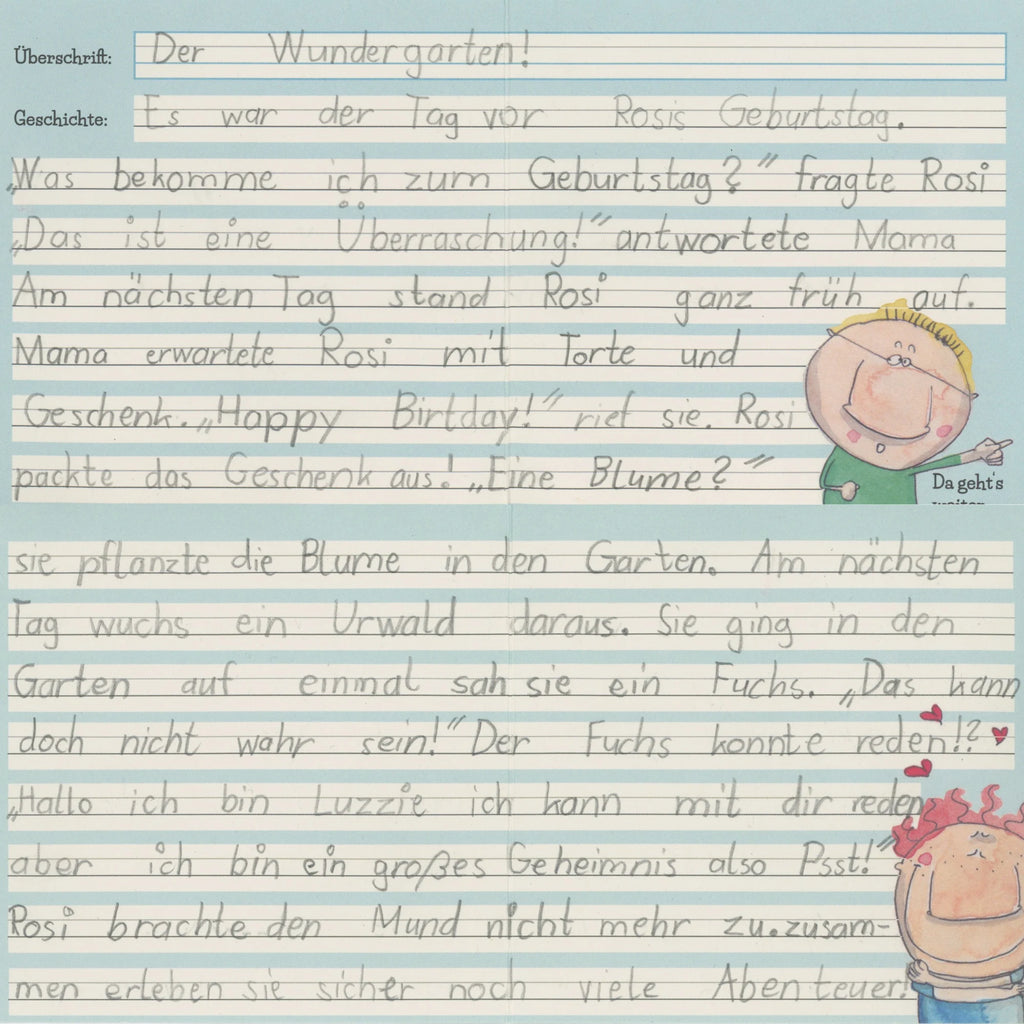 Überschrift: Der Wundergarten!
Geschichte: Es war der Tag vor Rosis Geburtstag.
„Was bekomme ich zum Geburtstag?" fragte Rosi
„Das ist eine Überraschung!" antwortete Mama
Am nächsten Tag stand Rosi ganz früh auf.
Mama erwartete Rosi mit Torte und
Geschenk. „Happy Birtday!" rief sie. Rosi
packte das Geschenk aus! „Eine Blume?"
Da geht's
weiter
sie pflanzte die Blume in den Garten. Am nächsten
Tag wuchs ein Urwald daraus. Sie ging in den
Garten auf einmal sah sie ein Fuchs. „Das kann
doch nicht wahr sein!" Der Fuchs konnte reden!?
„Hallo ich bin Luzzie ich kann mit dir reden
aber ich bin ein großes Geheimnis also Psst!"
Rosi brachte den Mund nicht mehr zu. zusam-
men erleben sie sicher noch viele Abenteuer!